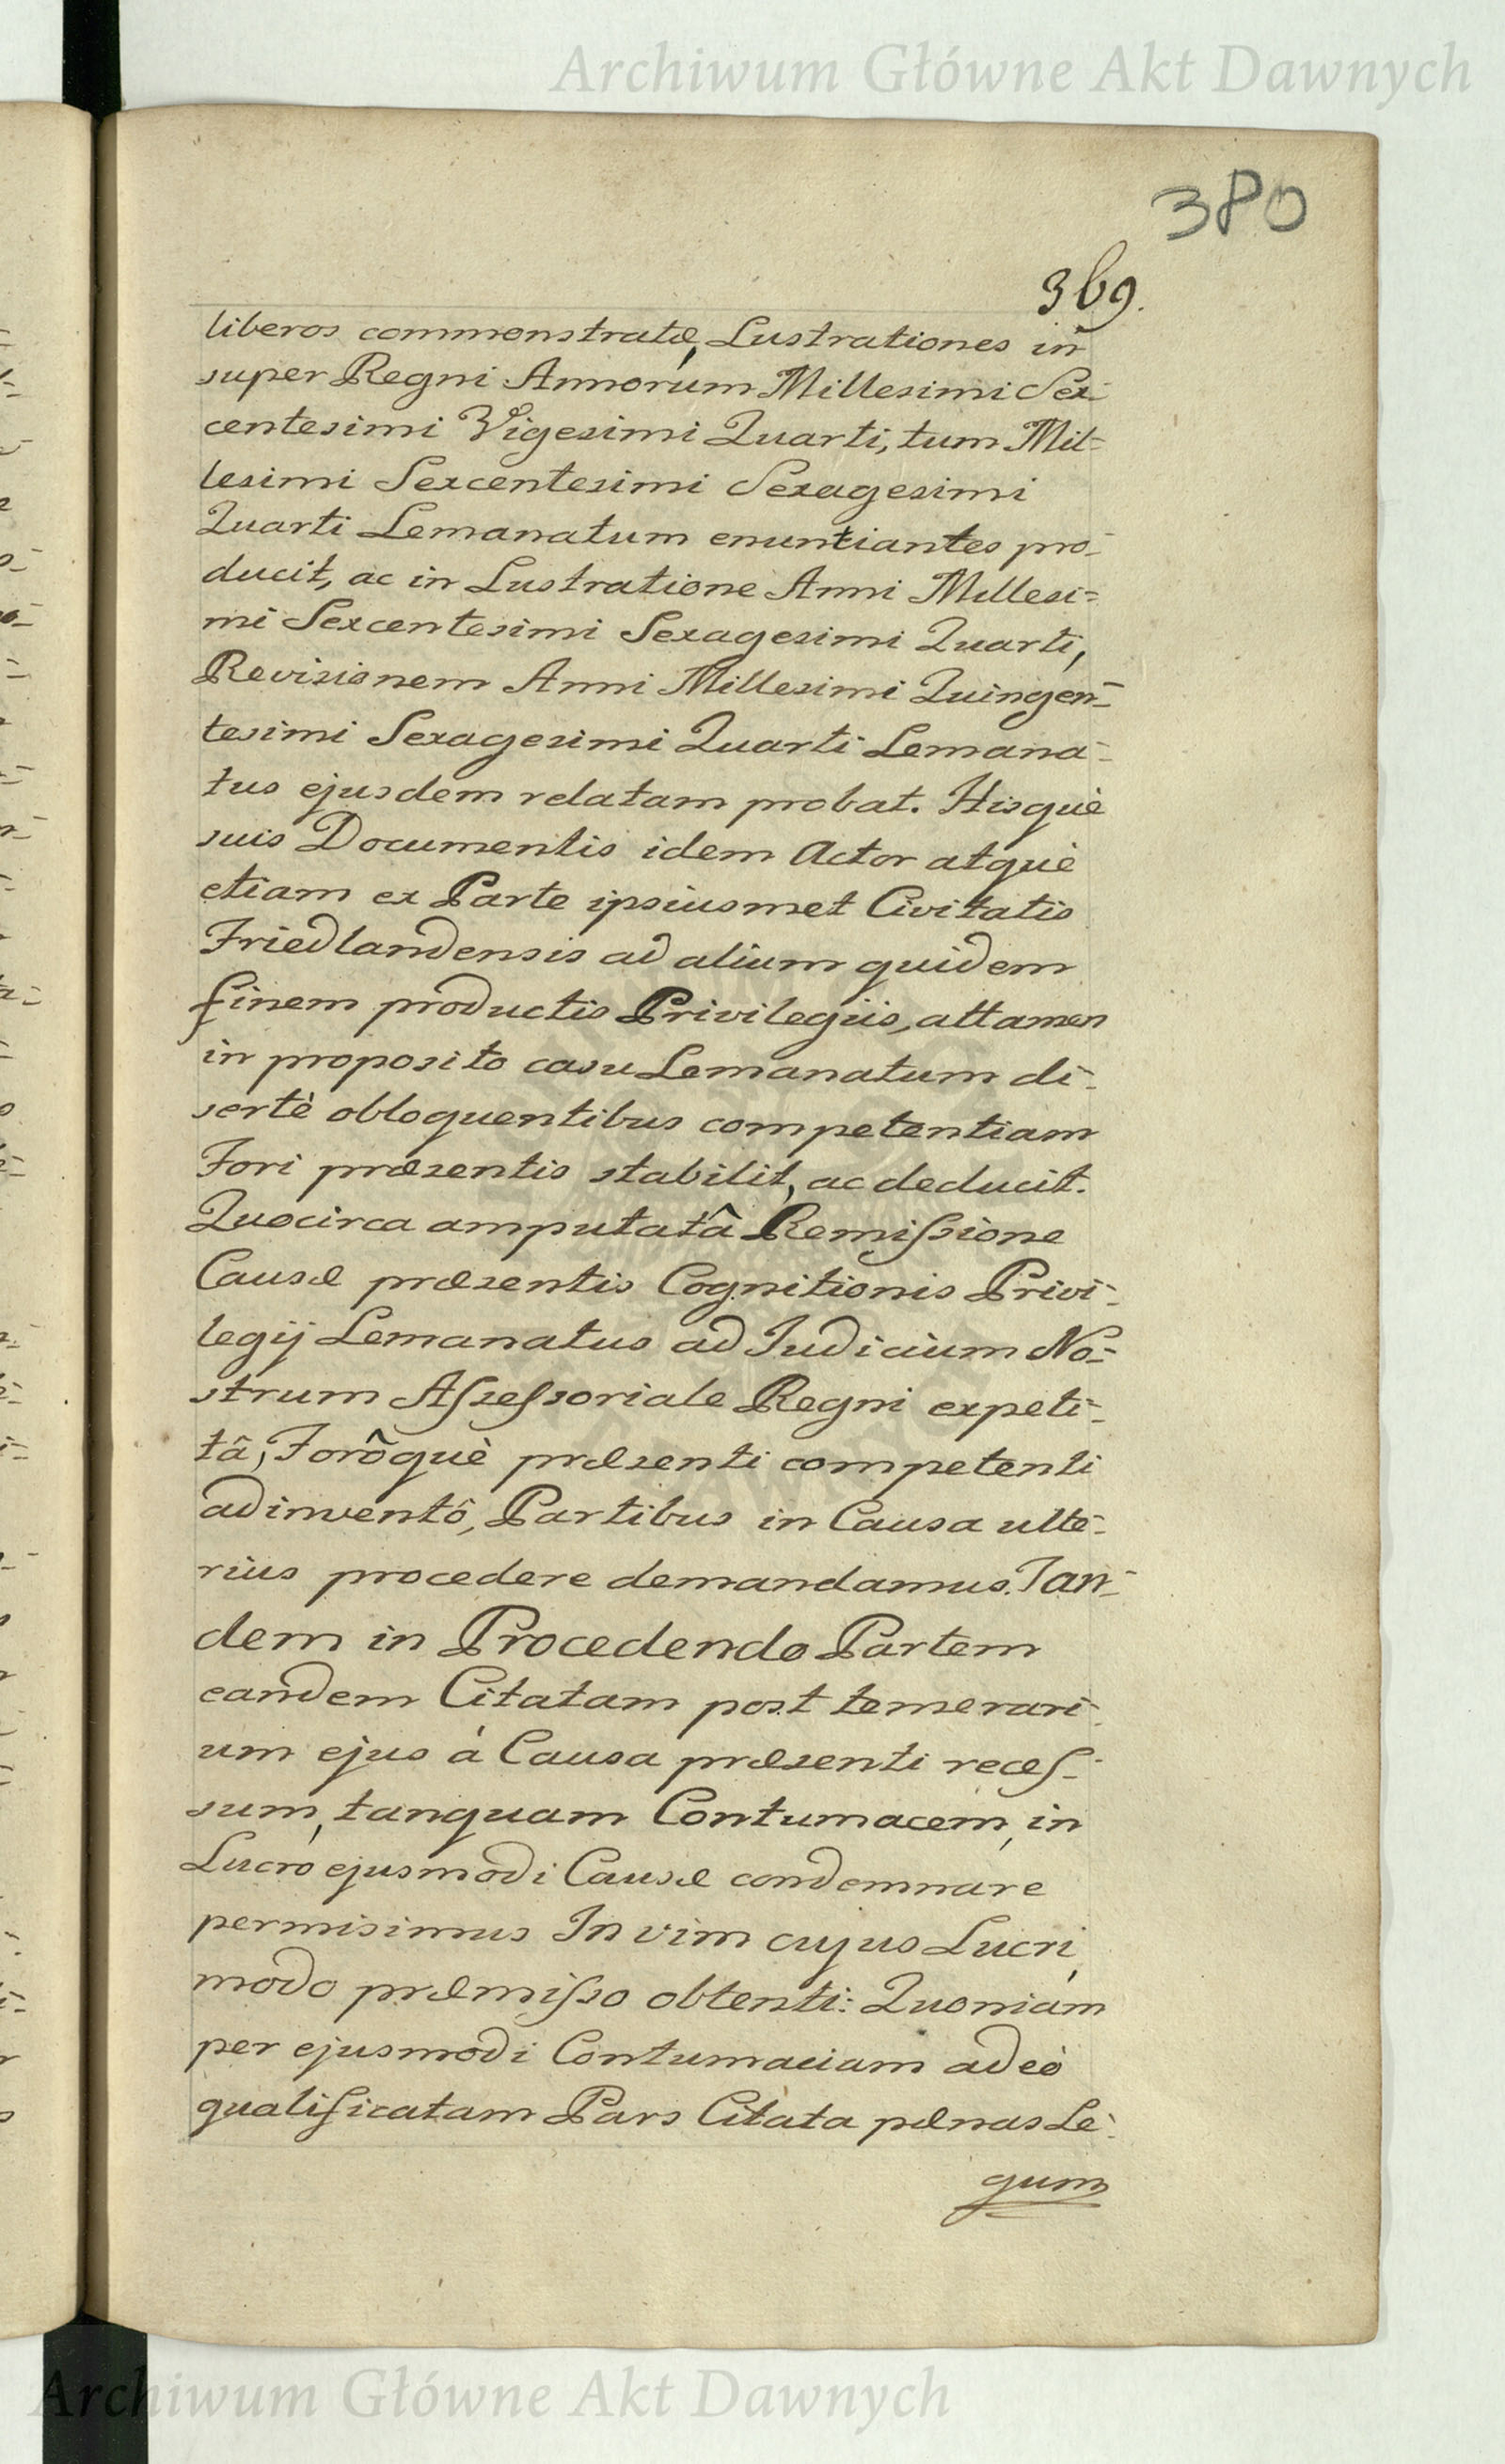 Archiwum Główne Akt Dawnych
380
369.
liberos commonstratæ, Lustrationes in
super Regni Annorum Millesimi Sex-
centesimi Vigesimi Quarti, tum Mil=
lesimi Sexcentesimi Sexagesimi
Quarti Lemanatum enuntiantes pro-
ducit, ac in Lustratione Anni Millesi=
mi Sexcentesimi Sexagesimi Quarti,
Revisionem Anni Millesimi Quingen=
tesimi Sexagesimi Quarti Lemana-
tus ejusdem relatam probat. Hisquè
suis Documentis idem Actor atquè
etiam ex Parte ipsiusmet Civitatis
Friedlandensis ad alium quidem
finem productis Privilegiis, attamen
in proposito casu Lemanatum di-
sertè obloquentibus competentiam
Fori præsentis stabilit, ac deducit.
Quocirca amputatâ Remiſsione
Causæ præsentis Cognitionis Privi-
legij Lemanatus ad Judicium No=
strum Aſseſsoriale Regni expeti-
tâ, Forôquè præsenti competenti
adinventô, Partibus in Causa ulte-
rius procedere demandamus. Tan-
dem in Procedendo Partem
eandem Citatam post temerari-
um ejus à Causa præsenti receſ-
sum, tanquam Contumacem, in
Lucro ejusmodi Causæ condemnare
permisimus In vim cujus Lucri,
modo præmiſso obtenti: Quoniam
per ejusmodi Contumaciam adeò
qualificatam Pars Citata pænas Le-
gum
Archiwum Główne Akt Dawnych